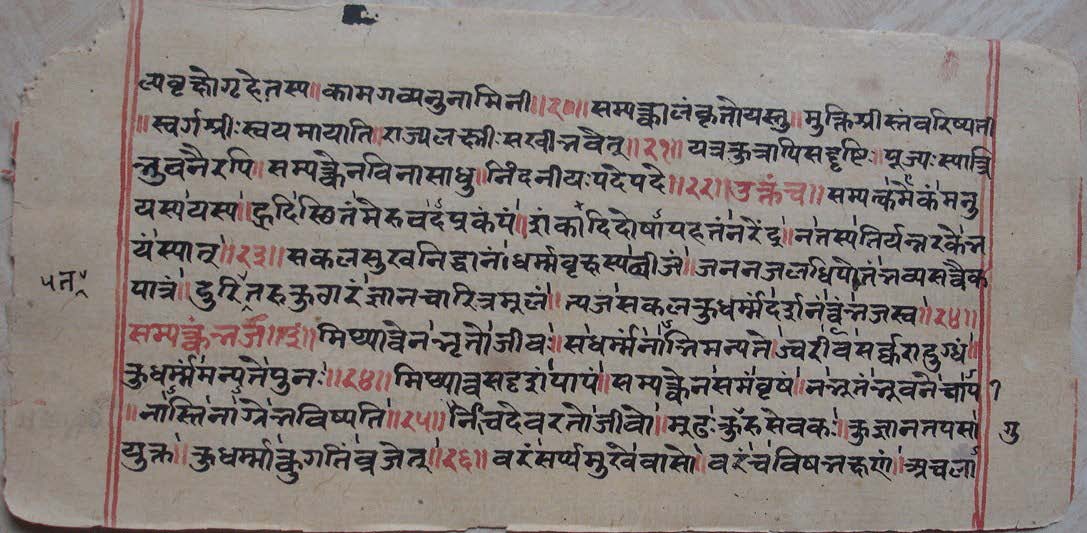 ल्पवृक्षोगृहेतस्य॥कामगव्यनुगामिनी॥२०॥सम्यक्कालंकृतोयस्तु॥मुक्तिश्रीस्तंवरिष्यती
॥स्वर्गश्रीःस्वयमायाति॥राज्यलक्ष्मीःसखीभवेत्॥२१॥यत्रकुत्रापिसद्दृष्टिः॥पूज्यःस्याद्भि
भुवनैरपि॥सम्यक्त्वेनविनासाधु॥निंदनीयःपदेपदे॥२२॥उक्तंच॥सम्यत्कमेकंमनु
यस्ययस्य॥हृदिस्थितंमेरुवदप्रकंपं॥शंकादिदोषापहतंनरेंद्र॥नतस्यतिर्यग्नरकेभ
यंस्यात्॥२३॥सकलसुखनिद्धानं॥धर्म्मवृक्षस्यबीजं॥जननजलधिपोतंभव्यसत्वैक
पात्रं॥दुरितरुकुठारंज्ञानचारित्रमूलं॥त्यजसकलकुधर्म्मंदर्शनंत्वंभजस्व॥२४॥
सम्यक्त्वंभज॥मिथ्यात्वेनभृतोजीवः॥सधर्म्मंनाभिमन्यते॥ज्वरीवसर्क्करादुग्धं॥
कुधर्म्मंमन्यतेपुनः॥२४॥मिथ्यात्वसदृशंपापं॥सम्यक्त्वेनसमंवृषं॥नभूतंभुवनेचापि
॥नास्तिनाग्रेभविष्यति॥२५॥निंद्यदेवरतोजीवो॥मूढःकुगुरुसेवकः॥कुज्ञानतपसा
युक्तः॥कुधर्म्मात्कुगतिंव्रजेत्॥२६॥वरंसर्प्पमुखेवासो॥वरंचविषभक्षणं॥अचला